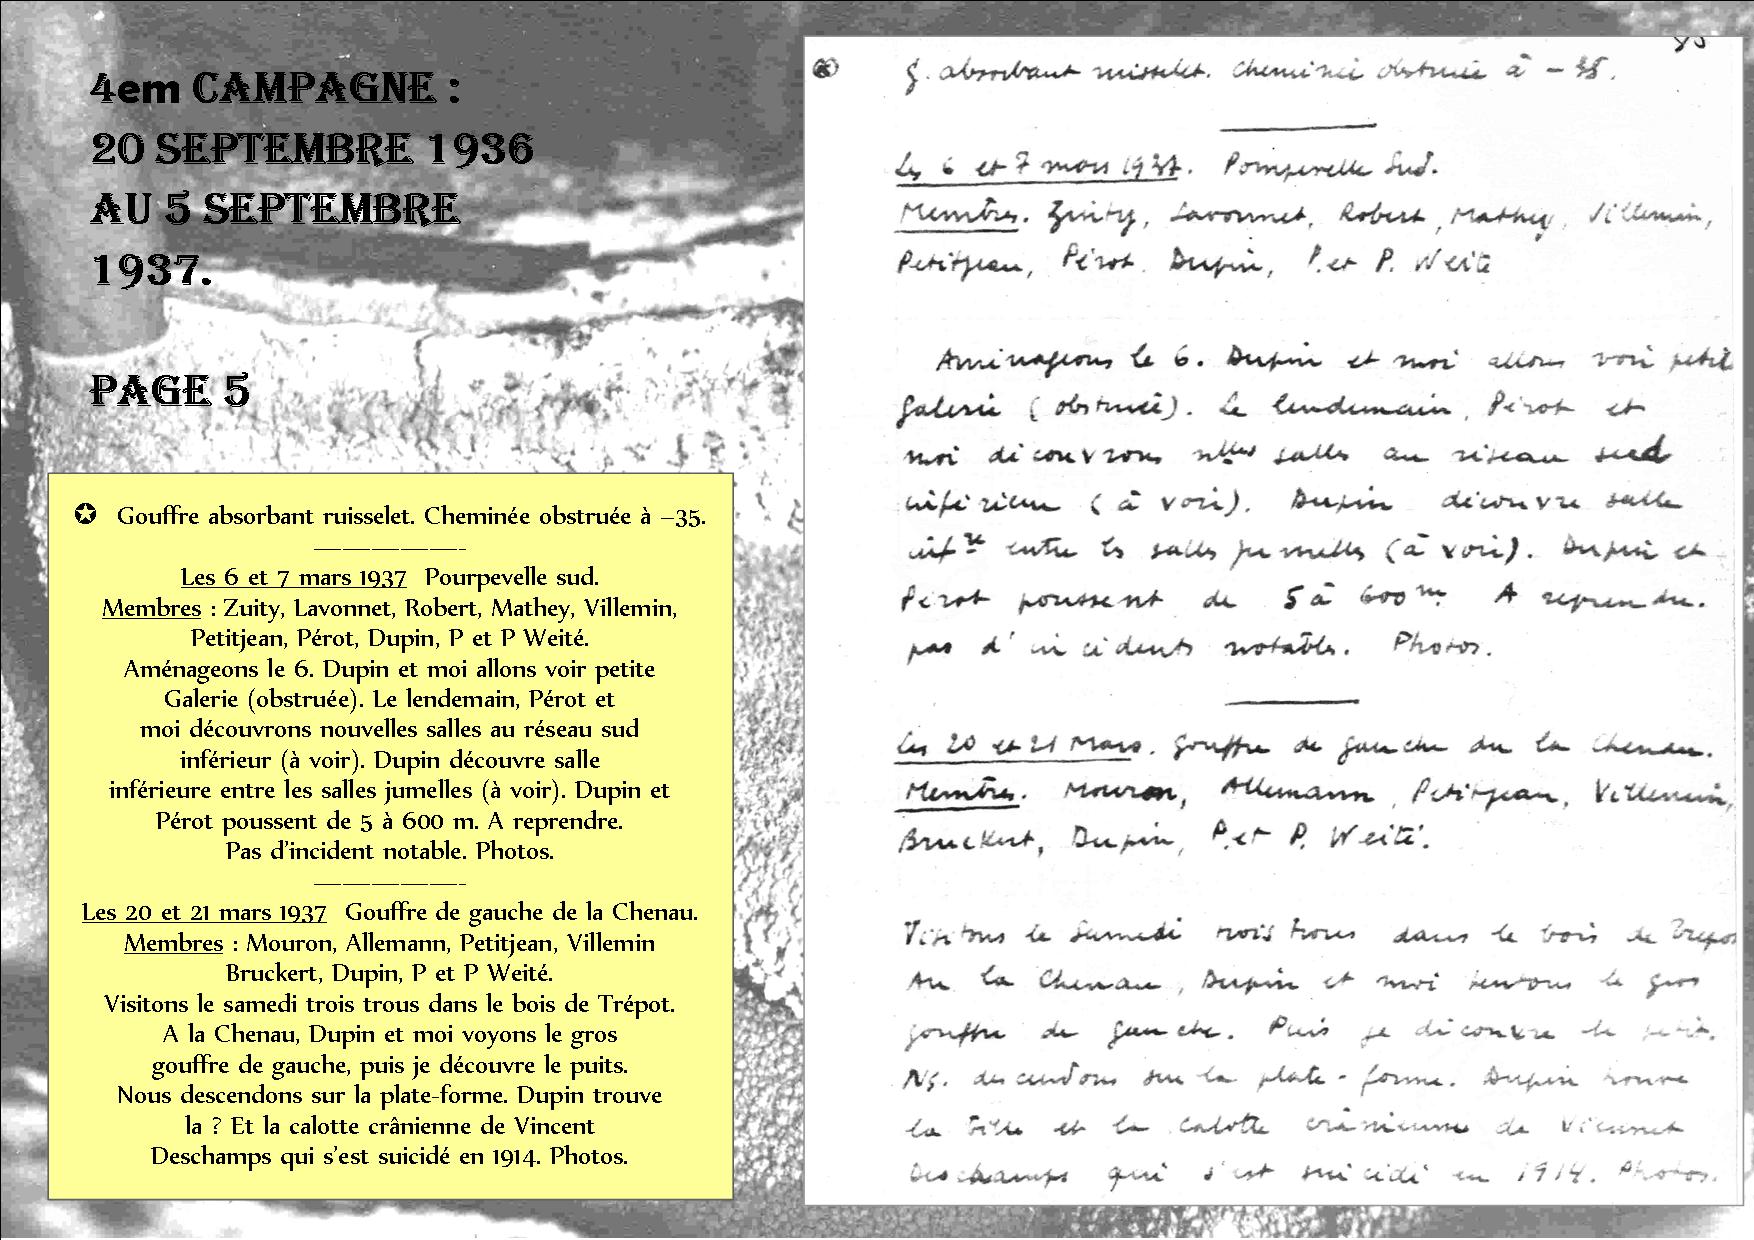 4em CAMPAGNE :
20 SEPTEMBRE 1936
AU 5 SEPTEMBRE
1937.
PAGE 5
✪ Gouffre absorbant ruisselet. Cheminée obstruée à –35.
Les 6 et 7 mars 1937 Pourpevelle sud.
Membres : Zuity, Lavonnet, Robert, Mathey, Villemin,
Petitjean, Pérot, Dupin, P et P Weité.
Aménageons le 6. Dupin et moi allons voir petite
Galerie (obstruée). Le lendemain, Pérot et
moi découvrons nouvelles salles au réseau sud
inférieur (à voir). Dupin découvre salle
inférieure entre les salles jumelles (à voir). Dupin et
Pérot poussent de 5 à 600 m. A reprendre.
Pas d'incident notable. Photos.
Les 20 et 21 mars 1937 Gouffre de gauche de la Chenau.
Membres : Mouron, Allemann, Petitjean, Villemin
Bruckert, Dupin, P et P Weité.
Visitons le samedi trois trous dans le bois de Trépot.
A la Chenau, Dupin et moi voyons le gros
gouffre de gauche, puis je découvre le puits.
Nous descendons sur la plate-forme. Dupin trouve
la ? Et la calotte crânienne de Vincent
Deschamps qui s'est suicidé en 1914. Photos.
g. absorbant ruisselet. Cheminée obstruée à – 35.
Les 6 et 7 mars 1937. Pourpevelle Sud.
Membres. Zuity, Lavonnet, Robert, Mathey, Villemin,
Petitjean, Pérot. Dupin, P. et P. Weité
Aménageons le 6. Dupin et moi allons voir petite
galerie (obstruée). Le lendemain, Pérot et
moi découvrons nlles salles au réseau sud
inférieur (à voir). Dupin découvre salle
infre entre les salles jumelles (à voir). Dupin et
Pérot poussent de 5 à 600 m. A reprendre.
pas d'incidents notables. Photos.
Les 20 et 21 Mars. gouffre de gauche de la Chenau.
Membres. Mouron, Allemann, Petitjean, Villemin,
Bruckert, Dupin, P. et P. Weité.
Visitons le samedi trois trous dans le bois de Trépot
Au la Chenau, Dupin et moi tentons le gros
gouffre de gauche. Puis je découvre le petit.
Ns. descendons sur la plate-forme. Dupin trouve
la et la calotte crânienne de
Deschamps qui s'est suicidé en 1914. Photos.